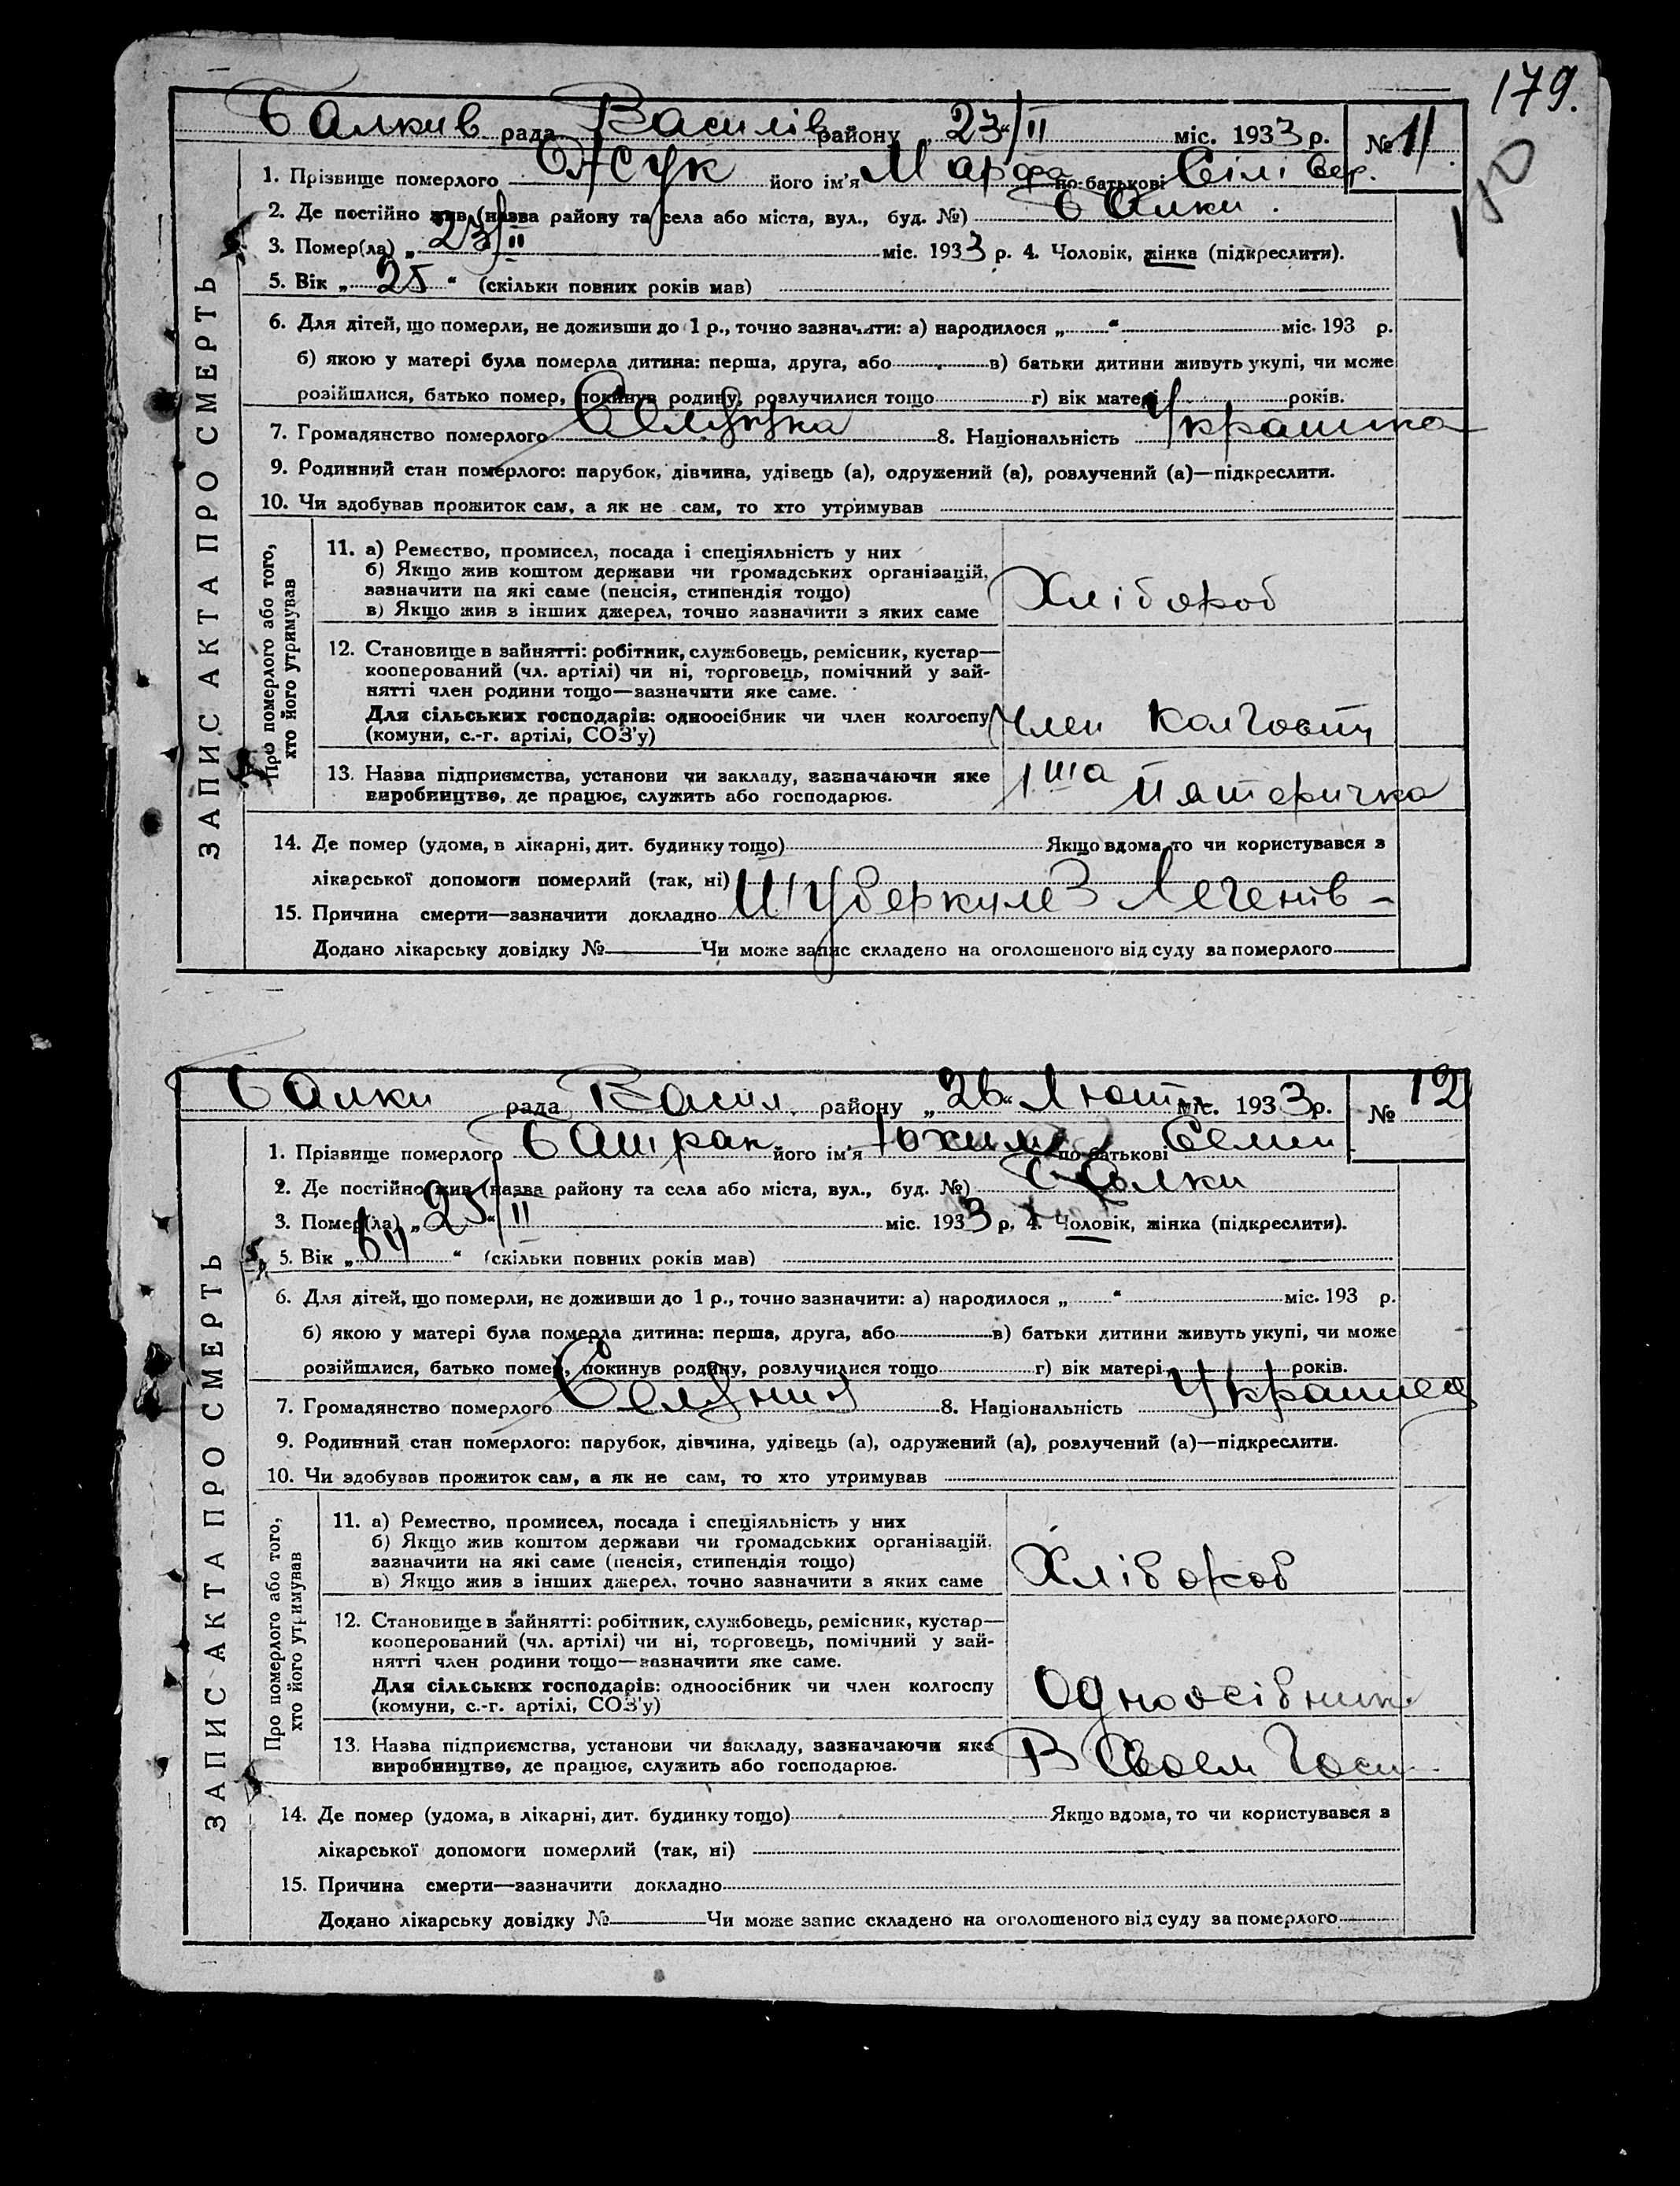 179.
180
Балкив рада Василів району „23“/II міс. 1933 р. № 11
1. Прізвище померлого його ім'я Марфа по-батькові Сілівер.
2. Де постійно жив (назва району та села або міста, вул., буд. №) Балки.
3. Помер(ла) „23/II міс. 1933 р. 4. Чоловік, жінка (підкреслити).
5. Вік „25“ (скільки повних років мав)
6. Для дітей, що померли, не доживши до 1 р., точно зазначити: а) народилося „ “ міс. 193 р.
б) якою у матері була померла дитина: перша, друга, або в) батьки дитини живуть укупі, чи може
розійшлися, батько помер, покинув родину, розлучилися тощо г) вік матері років.
7. Громадянство померлого Селянка 8. Національність Украинка
9. Родинний стан померлого: парубок, дівчина, удівець (а), одружений (а), розлучений (а)—підкреслити.
10. Чи здобував прожиток сам, а як не сам, то хто утримував
ЗАПИС АКТА ПРО СМЕРТЬ
Про померлого або того, хто його утримував
11. а) Ремество, промисел, посада і спеціяльність у них
б) Якщо жив коштом держави чи громадських організацій,
зазначити на які саме (пенсія, стипендія тощо)
в) Якщо жив з інших джерел, точно зазначити з яких саме
Хлібороб
12. Становище в зайнятті: робітник, службовець, ремісник, кустар—
кооперований (чл. артілі) чи ні, торговець, помічний у зай-
нятті член родини тощо—зазначити яке саме.
Для сільських господарів: одноосібник чи член колгоспу
(комуни, с.-г. артілі, СОЗ'у)
Член Колгоспу
13. Назва підприємства, установи чи закладу, зазначаючи яке
виробництво, де працює, служить або господарює.
1ша Пятеричка
14. Де помер (удома, в лікарні, дит. будинку тощо) Якщо вдома, то чи користувався з
лікарської допомоги померлий (так, ні)
15. Причина смерти—зазначити докладно Туберкулез Легенів
Додано лікарську довідку № Чи може запис складено на оголошеного від суду за померлого
Балки рада Васил. району „26“ Люта міс. 1933 р. № 12
1. Прізвище померлого Батрак його ім'я Юхим по-батькові Семен
2. Де постійно жив (назва району та села або міста, вул., буд. №) Балки
3. Помер(ла) „25“/II міс. 1933 р. 4. Чоловік, жінка (підкреслити).
5. Вік „ “ (скільки повних років мав)
6. Для дітей, що померли, не доживши до 1 р., точно зазначити: а) народилося „ “ міс. 193 р.
б) якою у матері була померла дитина: перша, друга, або в) батьки дитини живуть укупі, чи може
розійшлися, батько помер, покинув родину, розлучилися тощо г) вік матері років.
7. Громадянство померлого Селянин 8. Національність Украинец
9. Родинний стан померлого: парубок, дівчина, удівець (а), одружений (а), розлучений (а)—підкреслити.
10. Чи здобував прожиток сам, а як не сам, то хто утримував
ЗАПИС АКТА ПРО СМЕРТЬ
Про померлого або того, хто його утримував
11. а) Ремество, промисел, посада і спеціяльність у них
б) Якщо жив коштом держави чи громадських організацій,
зазначити на які саме (пенсія, стипендія тощо)
в) Якщо жив з інших джерел, точно зазначити з яких саме
Хлібороб
12. Становище в зайнятті: робітник, службовець, ремісник, кустар—
кооперований (чл. артілі) чи ні, торговець, помічний у зай-
нятті член родини тощо—зазначити яке саме.
Для сільських господарів: одноосібник чи член колгоспу
(комуни, с.-г. артілі, СОЗ'у)
Одноосібник
13. Назва підприємства, установи чи закладу, зазначаючи яке
виробництво, де працює, служить або господарює.
В Своем Госп.
14. Де помер (удома, в лікарні, дит. будинку тощо) Якщо вдома, то чи користувався з
лікарської допомоги померлий (так, ні)
15. Причина смерти—зазначити докладно
Додано лікарську довідку № Чи може запис складено на оголошеного від суду за померлого